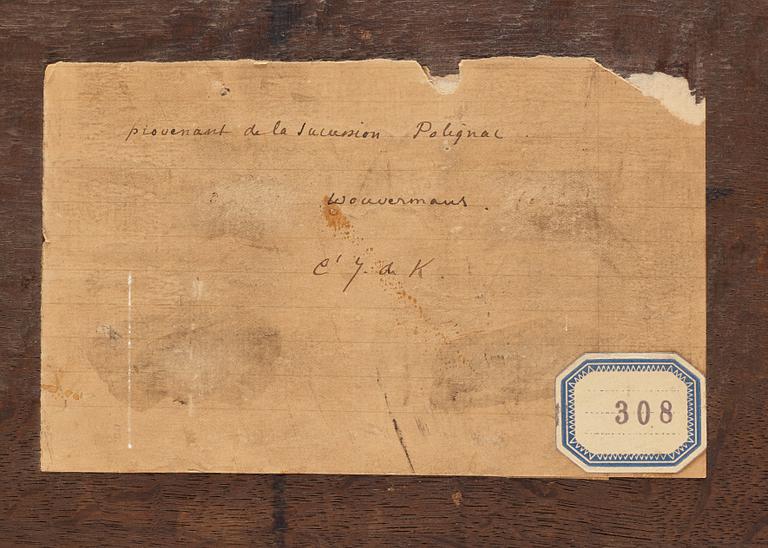 provenant de la Succession Polignac
Wouvermans.
Ct J. de K.
308